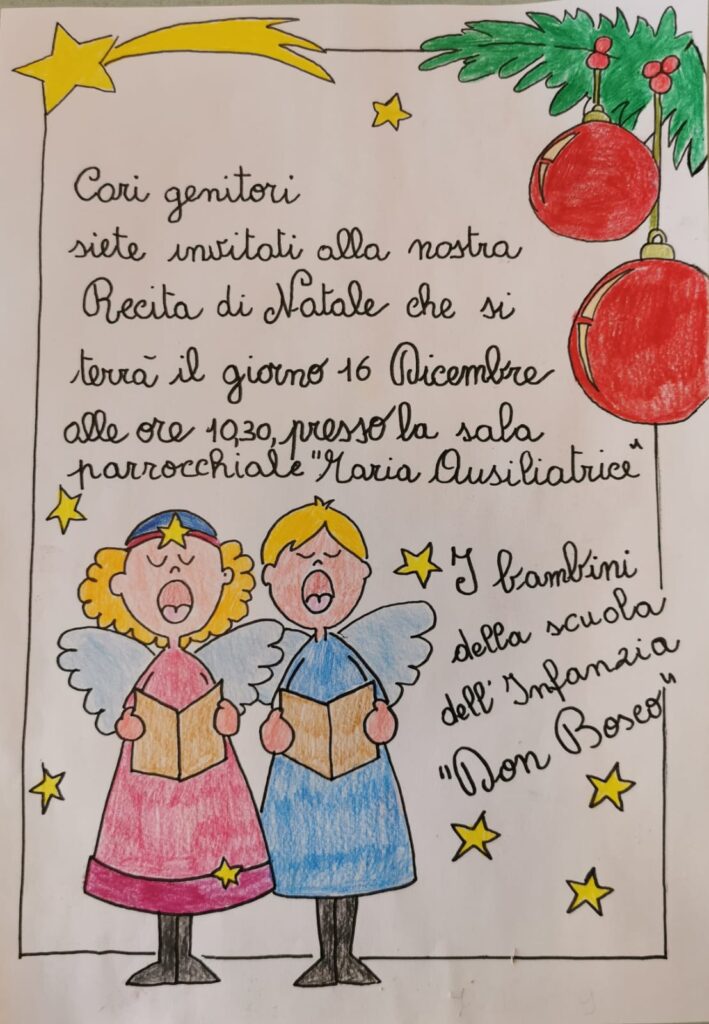 Cari genitori
siete invitati alla nostra
Recita di Natale che si
terrà il giorno 16 Dicembre
alle ore 10,30, presso la sala
parrocchiale "Maria Ausiliatrice"
I bambini
della scuola
dell'Infanzia
"Don Bosco"